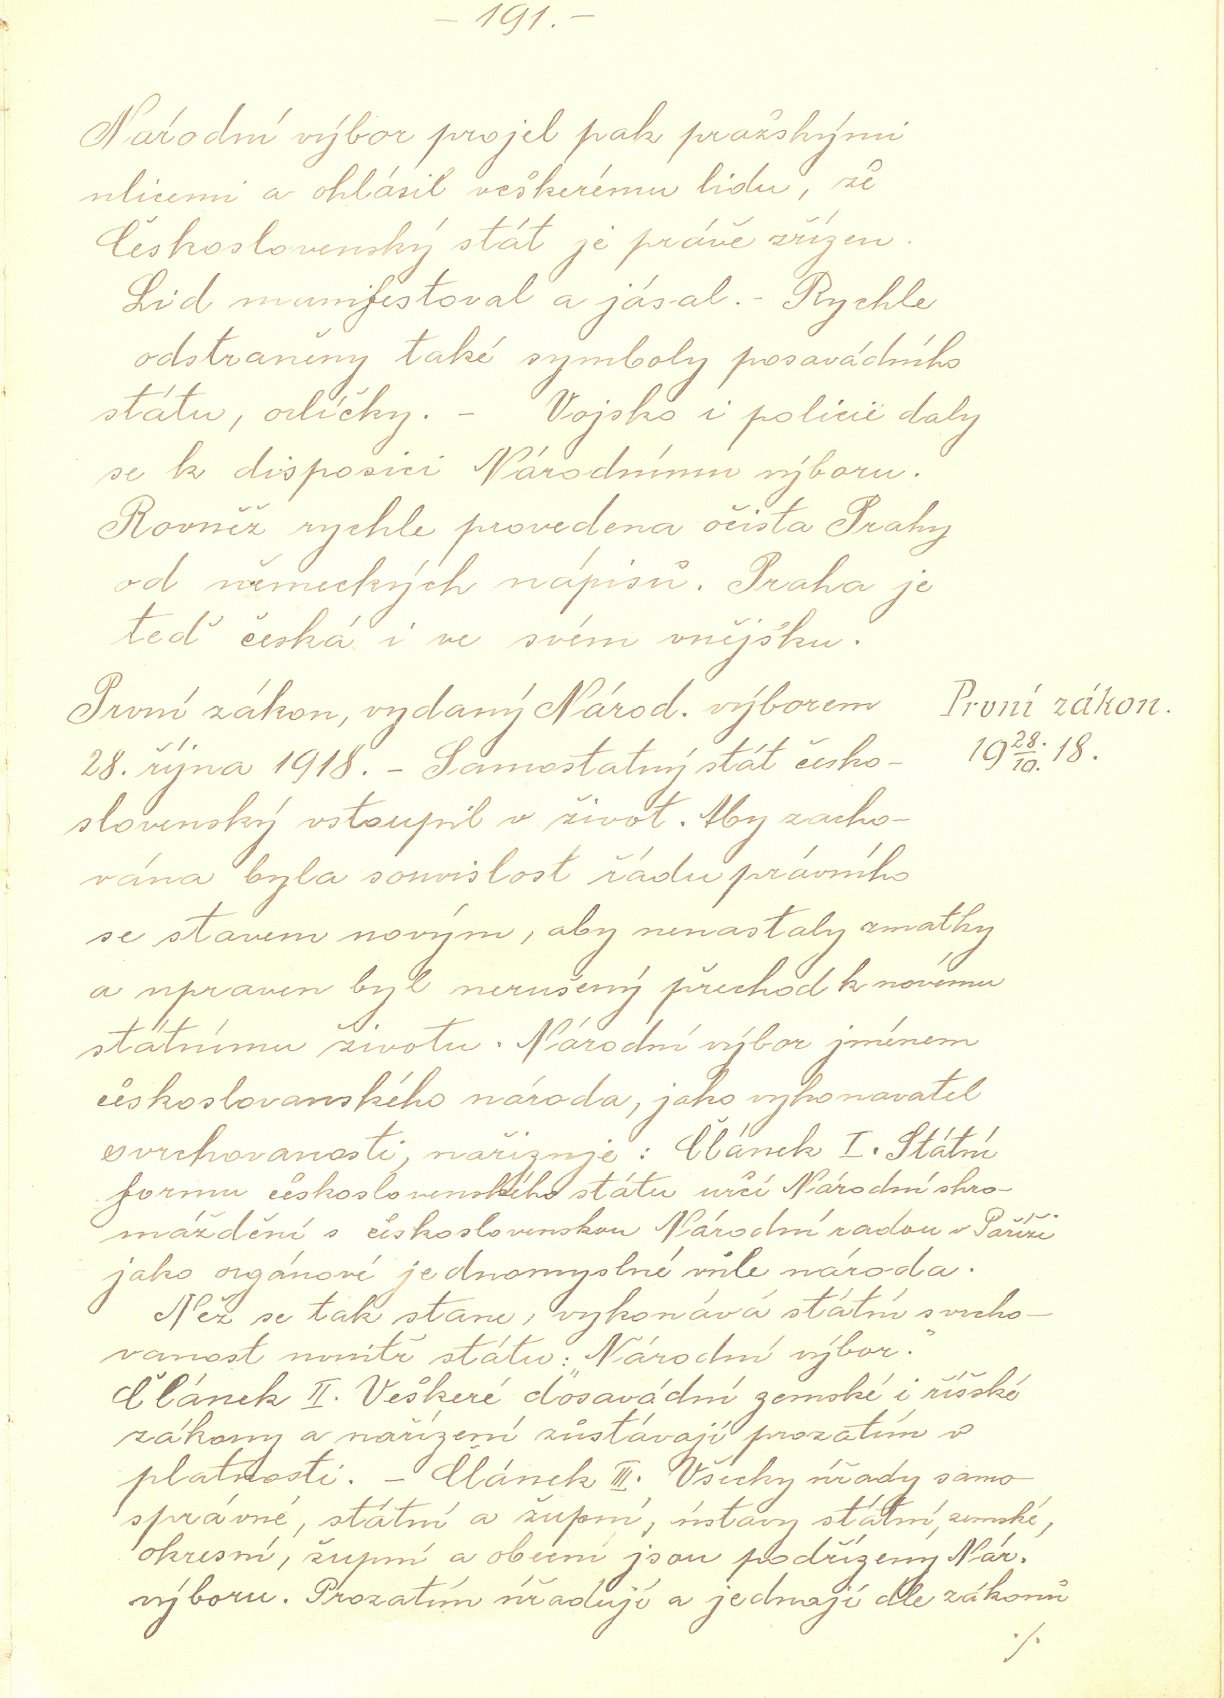 - 191. -
Národní výbor projel pak pražskými
ulicemi a ohlásil veškerému lidu, že
Československý stát je právě zřízen.
Lid manifestoval a jásal. - Rychle
odstraněny také symboly posavádního
státu, orlíčky. - Vojsko i policie daly
se k disposici Národnímu výboru.
Rovněž rychle provedena očista Prahy
od německých nápisů. Praha je
teď česká i ve svém vnějšku.
První zákon, vydaný Národ. výborem
První zákon.
28. října 1918. - Samostatný stát česko-
19 28./10. 18.
slovenský vstoupil v život. Aby zacho-
vána byla souvislost řádu právního
se stavem novým, aby nenastaly zmatky
a upraven byl nerušený přechod k novému
státnímu životu. Národní výbor jménem
československého národa, jako vykonavatel
svrchovanosti, nařizuje: Článek I. Státní
formu československého státu určí Národní shro-
máždění s československou Národní radou v Paříži
jako orgánové jednomyslné vůle národa.
Než se tak stane, vykonává státní svrcho-
vanost uvnitř státu: Národní výbor."
Článek II. Veškeré dosavádní zemské i říšské
zákony a nařízení zůstávají prozatím v
platnosti. - Článek III. Všecky úřady samo-
správné, státní a župní, ústavy státní, zemské,
okresní, župní a obecní jsou podřízeny Nár.
výboru. Prozatím úřadují a jednají dle zákonů
./.